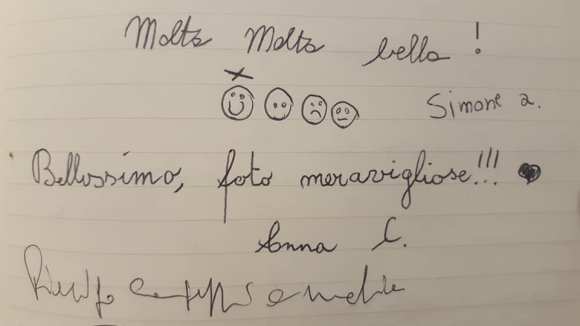 Molto Molto bella!
Simone a.
Bellissimo, foto meravigliose!!!
Anna C.